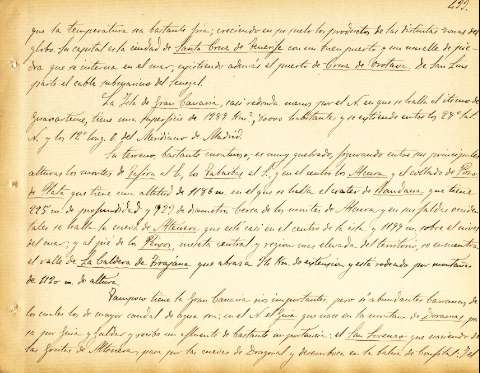 293.
que la temperatura es bastante fria; creciendo en su suelo los productos de las distintas zonas del
globo. Su capital es la ciudad de Santa Cruz de Tenerife con un buen puerto y un muelle de pie-
dra que se interna en el mar, existiendo además el puerto de Cruz de Orotava. De San Luis
parte el cable submarino del Senegal.
La Isla de Gran Canaria, casi redonda menos por el N. en que se halla el itsmo de
Guanarteme, tiene una superficie de habitantes y se extiende entre los 28º lat.
N. y los 12º long. O. del Meridiano de Madrid.
Su terreno, bastante montuoso, es muy quebrado, formando entre sus principales
alturas los montes de al E. y en el centro los y el collado de
de Plata que tiene una altitud de en el que se halla el crater de Bandama, que tiene
225 m. de profundidad y de diametro. Cerca de los montes de y en sus faldas occiden
tales se halla la cueva de que está casi en el centro de la isla y sobre el nivel
del mar; y al pie de los meseta central y region mas elevada del territorio, se encuentra
el valle de La Caldera de Tirajana que abraza de extension y está rodeado por montañas
de de altura.
Tampoco tiene la Gran Canaria rios importantes, pero si abundantes barrancos, de
los cuales los de mayor caudal de agua son; en el N. el Guia que nace en la montaña de Doramas, pa-
sa por Guia y Galdar y recibe un afluente de bastante importancia; el San Lorenzo que naciendo de
las fuentes de pasa por las cuevas de Dragonal y desemboca en la bahia de Confital. Del